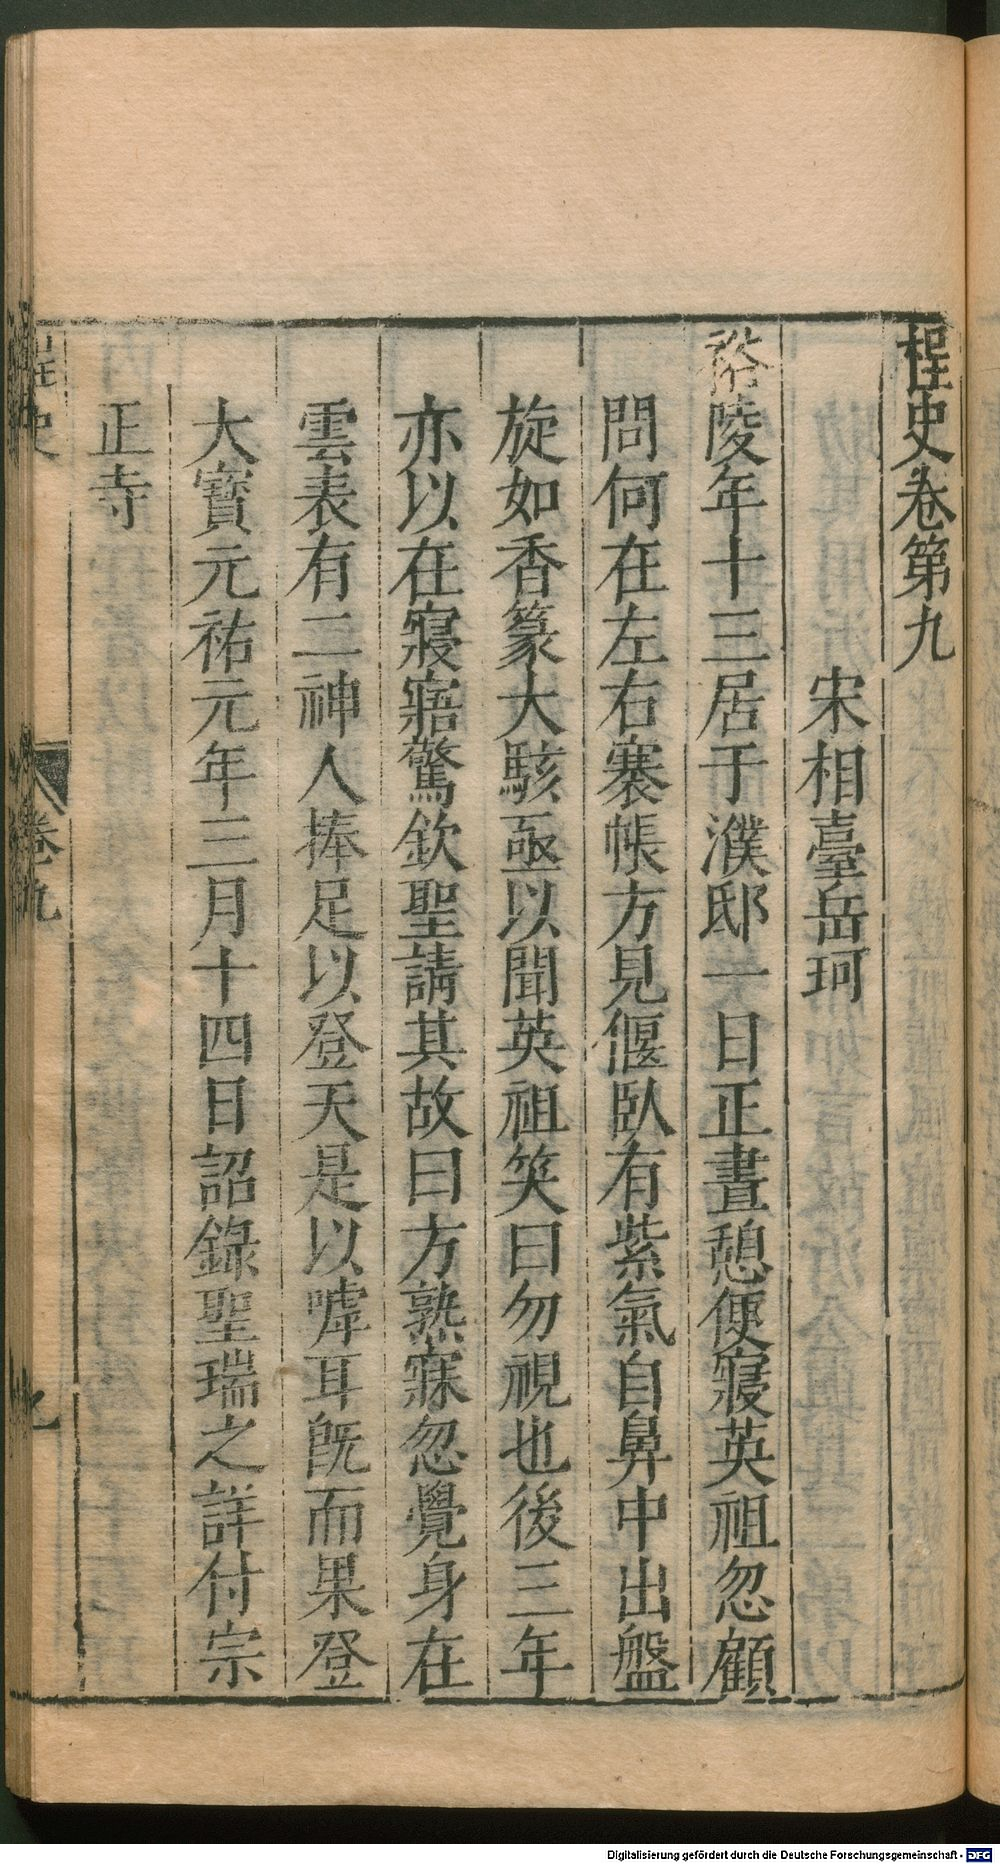 桯史卷第九
宋相臺岳珂
裕陵年十三居于濮邸一日正晝憩便寢英祖忽顧
問何在左右褰帳方見偃臥有紫氣自鼻中出盤
旋如香篆大駭亟以聞英祖笑曰勿視也後三年
亦以在寢寤驚欽聖請其故曰方熟寐忽覺身在
雲表有二神人捧足以登天是以嘑耳旣而果登
大寶元祐元年三月十四日詔錄聖瑞之詳付宗
正寺
桯史
卷九
Digitalisierung gefördert durch die Deutsche Forschungsgemeinschaft - DFG